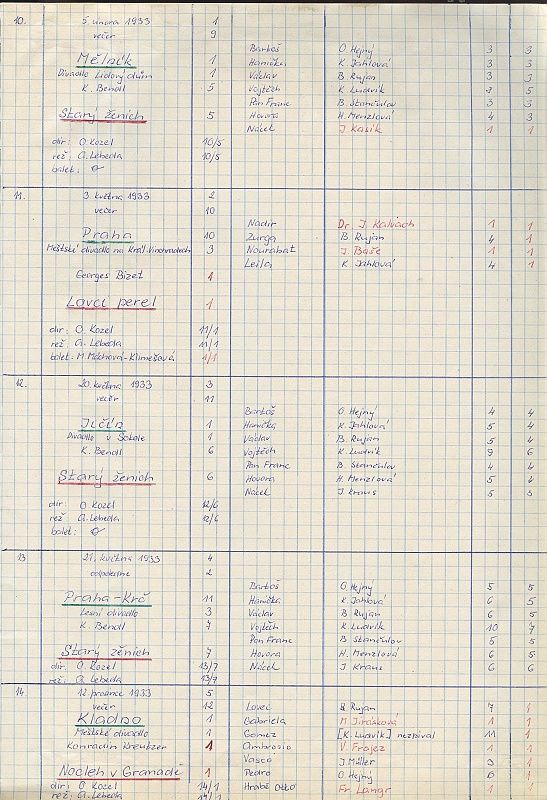 10. 5 února 1933 1
večer 9
Bartoš O Hejný 3 3
Mělník 1 Hanička K Jahlová 3 3
Divadlo Lidový dům 1 Václav B. Rujan 3 3
K. Bendl 5 Vojtěch K Ludvík 5
Pan Franc B. Stančulov 3 3
Starý ženich 5 Hovora H. Menzlová 4 3
Nácek J Kasík 1 1
dir: O. Kozel 10/5
rež: A. Lebeda 10/5
balet:
11. 3. května 1933 2
večer 10
Nadir Dr. J. Kalvach 1 1
Praha 10 Zurga B Rujan 4 1
Městské divadlo na Král. Vinohradech 3 Nourabat J. Baše 1 1
Leila K Jahlová 4 1
Georges Bizet 1
Lovci perel 1
dir: O. Kozel 11/1
rež: A. Lebeda 11/1
balet: M Máchová-Klimešová 1/1
12. 20. května 1933 3
večer 11
Bartoš O. Hejný 4 4
Jičín 1 Hanička K. Jahlová 5 4
Divadlo v Sokole 1 Václav B Rujan 5 4
K. Bendl 6 Vojtěch K. Ludvík 9 6
Pan Franc B. Stančulov 4 4
Starý ženich 6 Hovora H. Menzlová 5 4
Nácek J Kraus 5 5
dir: O. Kozel 12/6
rež A. Lebeda 12/6
balet:
13 21. května 1933 4
odpoledne 2
Bartoš O Hejný 5 5
Praha-Krč 11 Hanička K Jahlová 6 5
Lesní divadlo 3 Václav B Rujan 6 5
K. Bendl 7 Vojtěch K. Ludvík 10 7
Pan Franc B Stančulov 5 5
Starý ženich 7 Hovora H. Menzlová 6 5
dir. O. Kozel 13/7 Nácek J Kraus 6 6
rež: A. Lebeda 13/7
14 12. prosince 1933 5
večer 12 Lovec B. Rujan 7 1
Kladno 1 Gabriela M Jirásková 1 1
Městské divadlo 1 Gomez [K. Ludvík] nezpíval 11 1
Konradin Kreutzer 1 Ambrosio V. Frajez 1 1
Vasco J. Müller 3 1
Nocleh v Granadě 1 Pedro O. Hejný 6 1
dir: O. Kozel 14/1 Hrabě Otto Fr. Langr 1 1
rež A. Lebeda 14/1